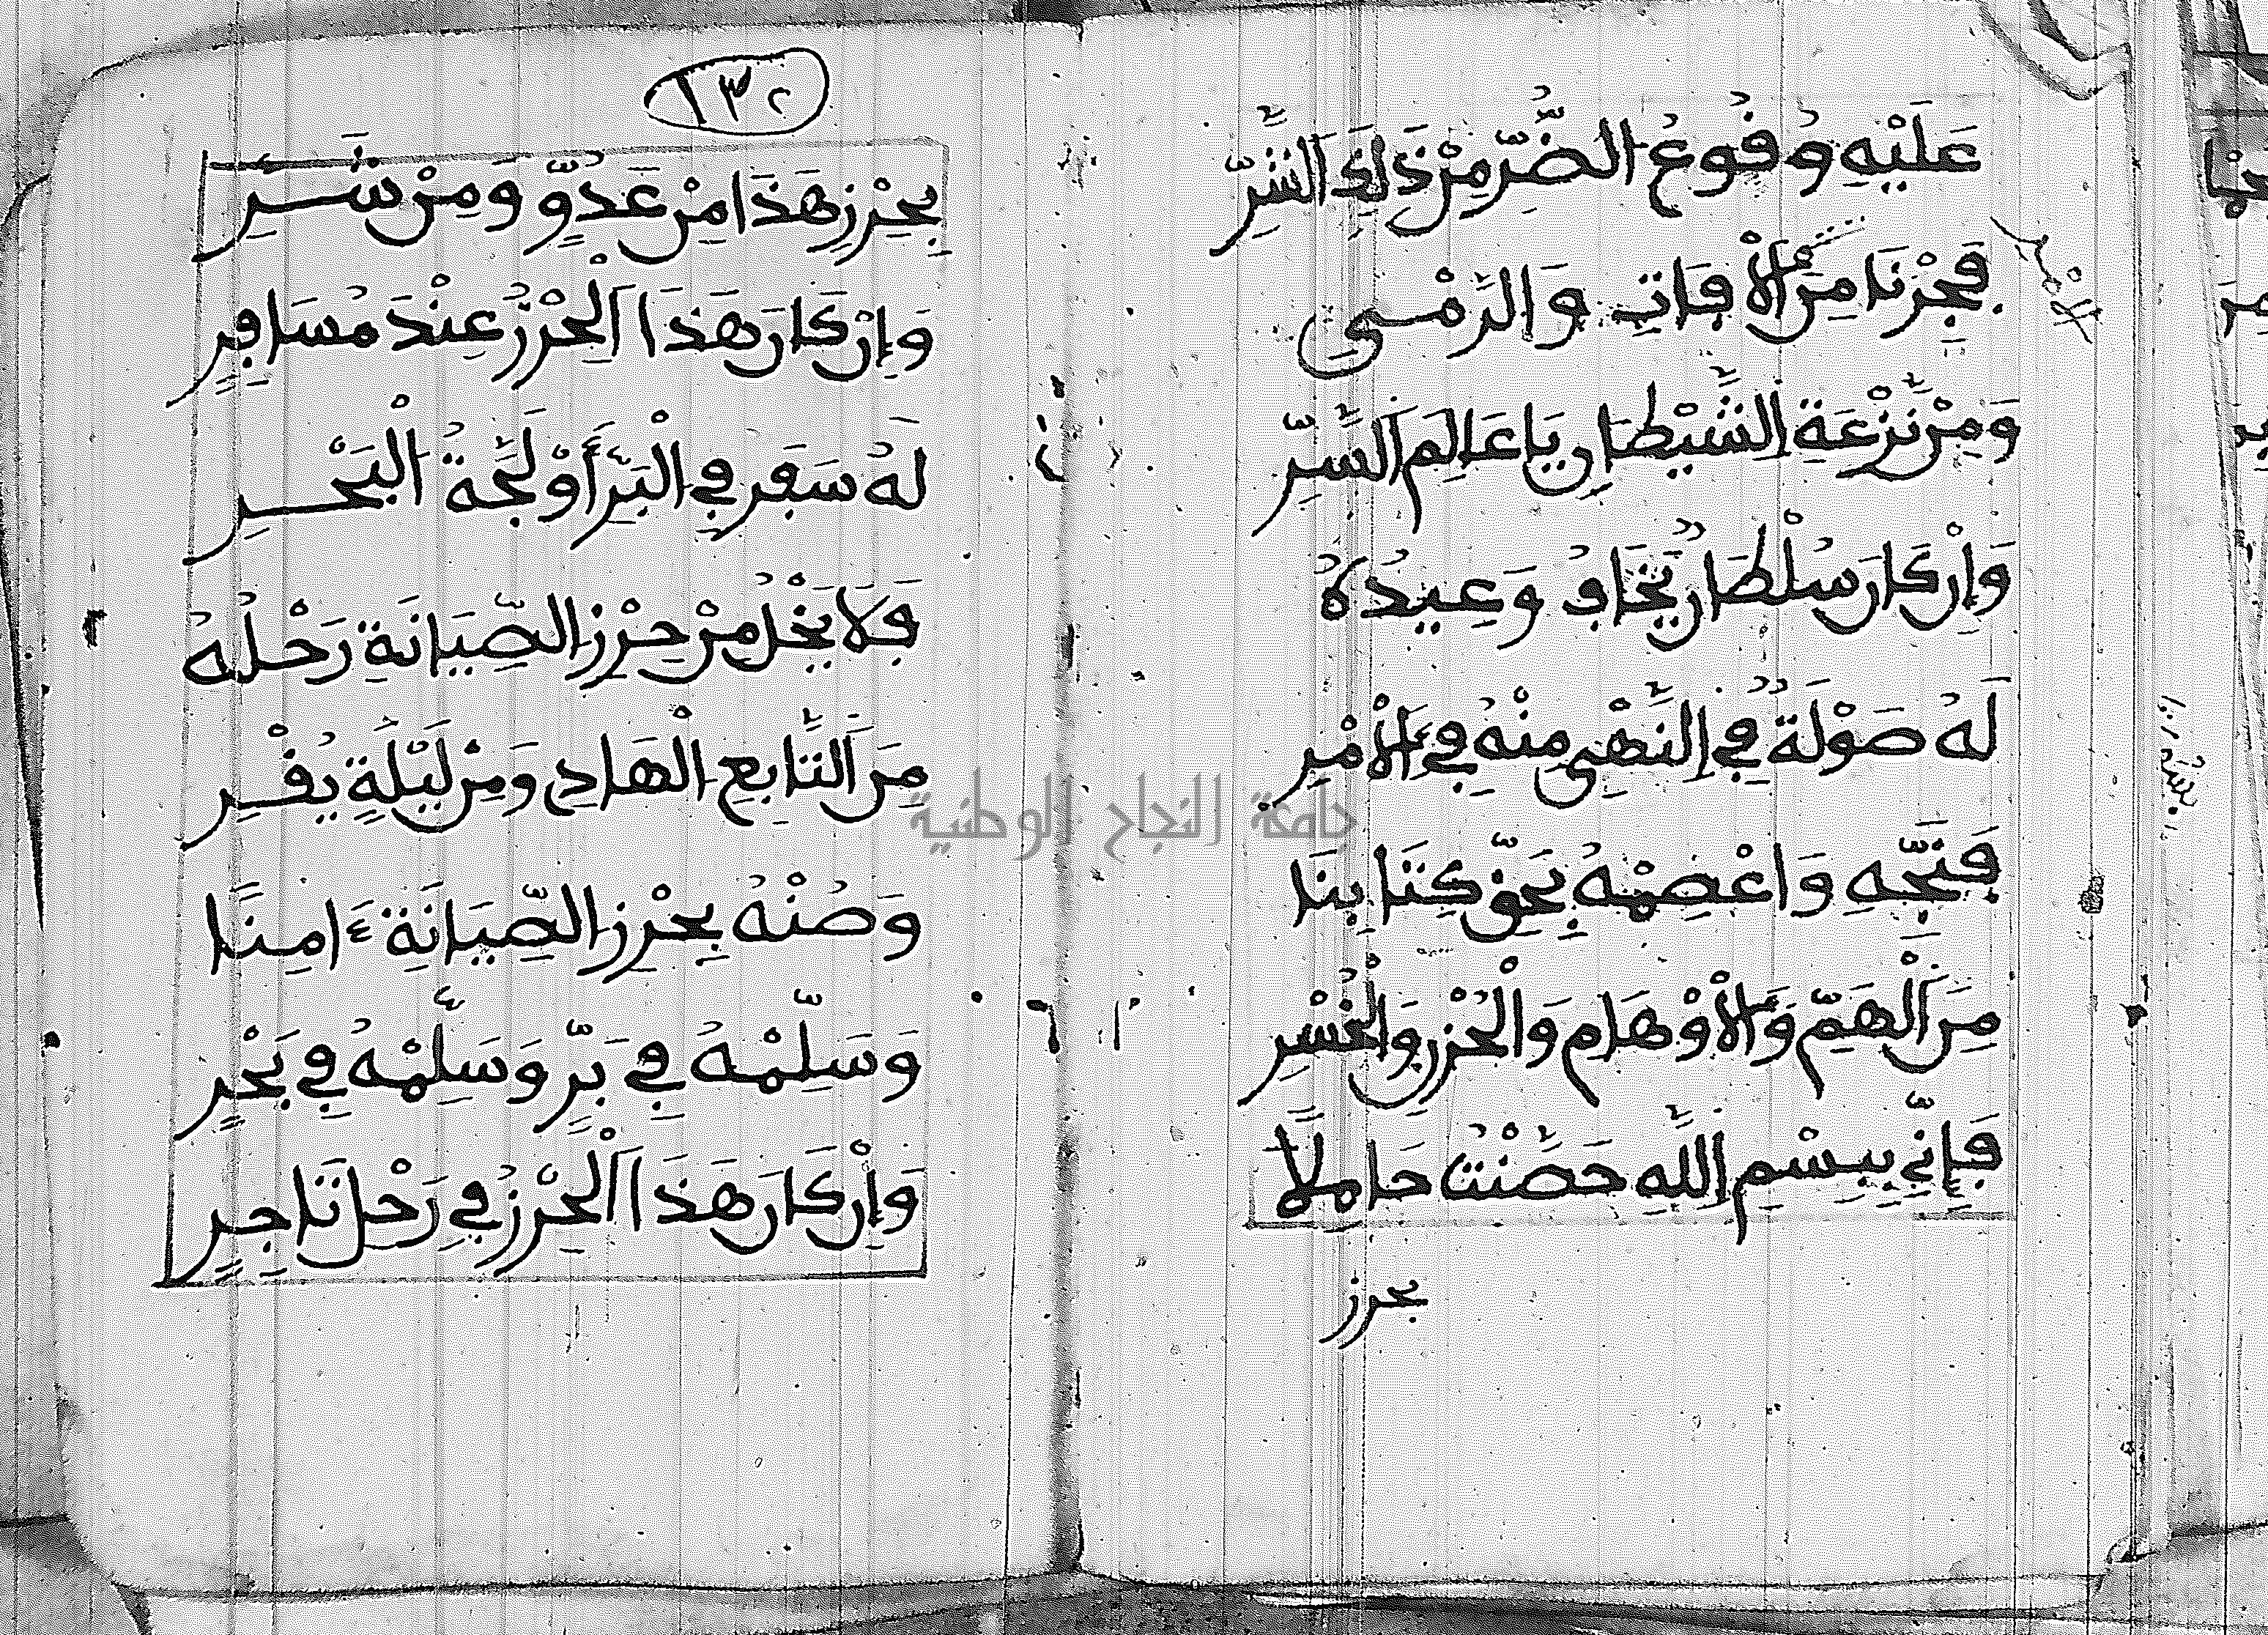 عَلَيْهِ وُقُوعُ الضُّرِّ مِنْ ذَلِكَ الشَّرِّ
فَحِرْنَا مِنَ الْأَفَاتِ وَالرَّمْيِ
وَمِنْ نَزْعَةِ الشَّيْطَانِ يَا عَالِمَ السِّرِّ
وَإِنْ كَانَ سُلْطَانٌ يُخَافُ وَعِيدُهُ
لَهُ صَوْلَةٌ فِي النَّهْيِ مِنْهُ فِي الْأَمْرِ
فَنَجِّهِ وَاعْصِمْهُ بِحَقِّ كِتَابِنَا
مِنَ الْهَمِّ وَالْأَوْهَامِ وَالْحُزْنِ وَالْخُسْرِ
فَإِنِّي بِبِسْمِ اللَّهِ حَصَّنْتُ حَامِلًا
بحرز
١٣٢
بِحِرْزِ هَذَا مِنْ عَدُوٍّ وَمِنْ شَرِّ
وَإِنْ كَانَ هَذَا الْحِرْزُ عِنْدَ مُسَافِرٍ
لَهُ سَفَرٌ فِي الْبَرِّ أَوْ لُجَّةِ الْبَحْرِ
فَلَا يَخْلُ مِنْ حِرْزِ الصِّيَانَةِ رَحْلُهُ
مِنَ التَّابِعِ الْهَادِ وَمِنْ لَيْلَةٍ يُقْرِ
وَصُنْهُ بِحِرْزِ الصِّيَانَةِ ءَامِنًا
وَسَلِّمْهُ فِي بَرٍّ وَسَلِّمْهُ فِي بَحْرٍ
وَإِنْ كَانَ هَذَا الْحِرْزُ فِي رَحْلِ تَاجِرٍ
جامعة النجاح الوطنية